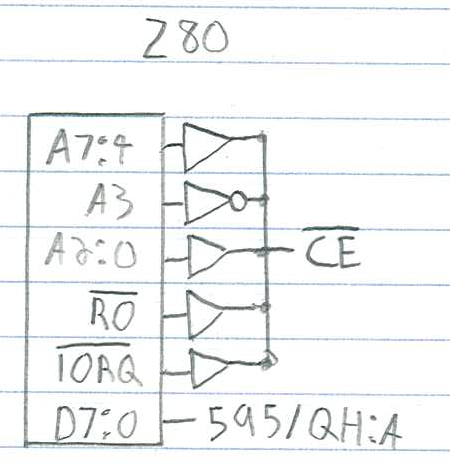 Z80
A7:4
A3
A2:0
RD
IORQ
CE
D7:0 595/QH:A